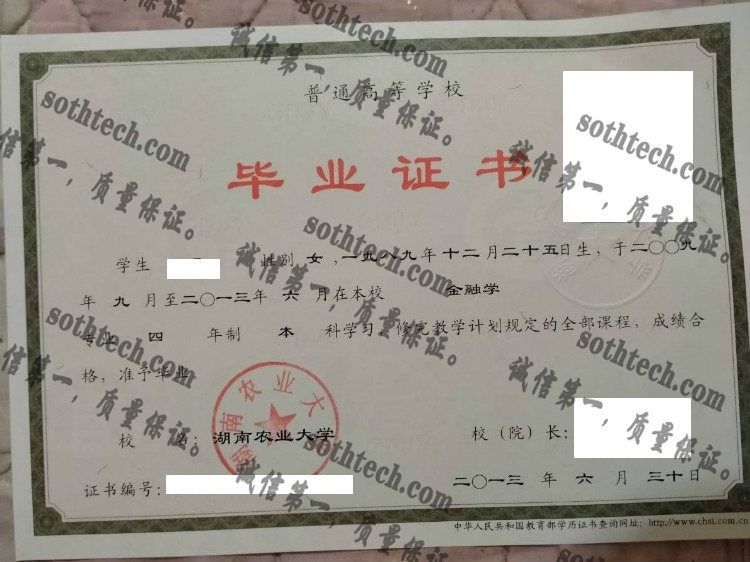 普通高等学校
毕业证书
学生 性别 女，一九八九年十二月二十五日生，于二〇〇九
年 九 月至二〇一三年 六 月在本校 金融学
专业 四 年制 本 科学习，修完教学计划规定的全部课程，成绩合
格，准予毕业。
湖南农业大
校 名：湖南农业大学
校（院）长：
证书编号：
二〇一三 年 六 月 三十日
中华人民共和国教育部学历证书查询网址：http://www.chsi.com.cn
sothtech.com
诚信第一，质量保证。
sothtech.com
诚信第一，质量保证。
sothtech.com
诚信第一，质量保证。
sothtech.com
诚信第一，质量保证。
sothtech.com
诚信第一，质量保证。
sothtech.com
诚信第一，质量保证。
sothtech.com
诚信第一，质量保证。
sothtech.com
诚信第一，质量保证。